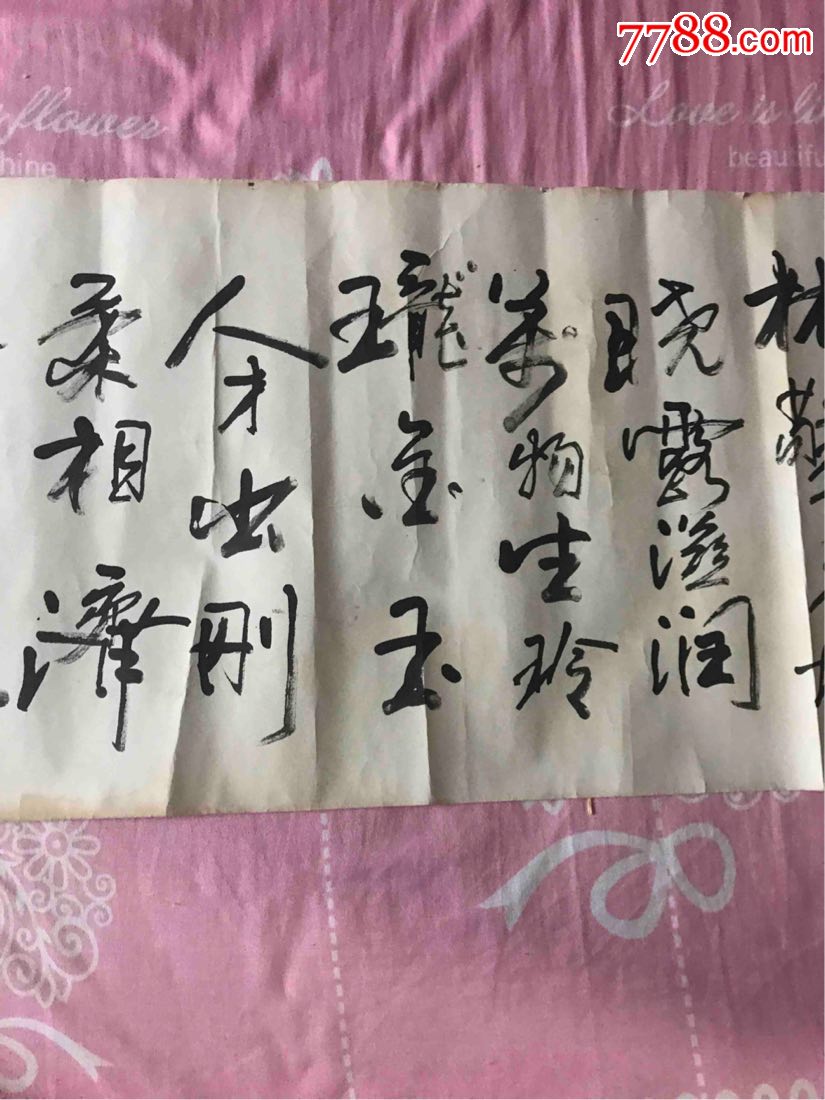 7788.com
flower
hine
Love is li
beautifu
林
晓露滋润
万物生玲
瓏金玉
人才出刚
柔相濟